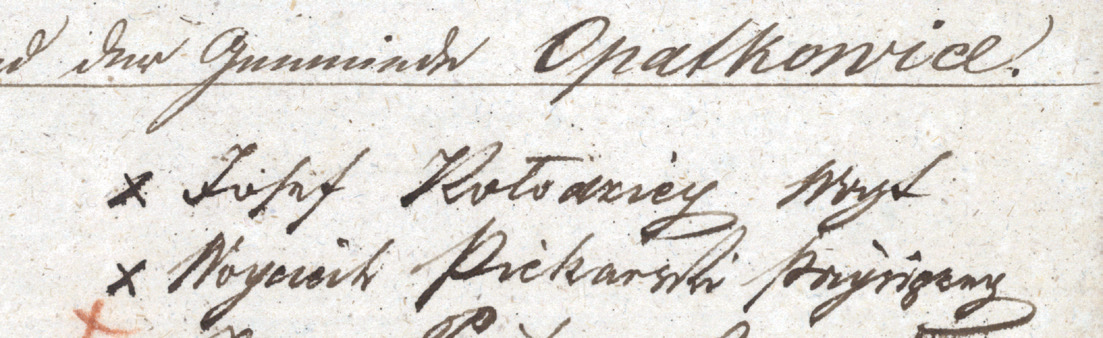 der Gemeinde Opatkowice.
x Josef Kołodziey Woyt
x Woyciech Piekarski Przysiężny